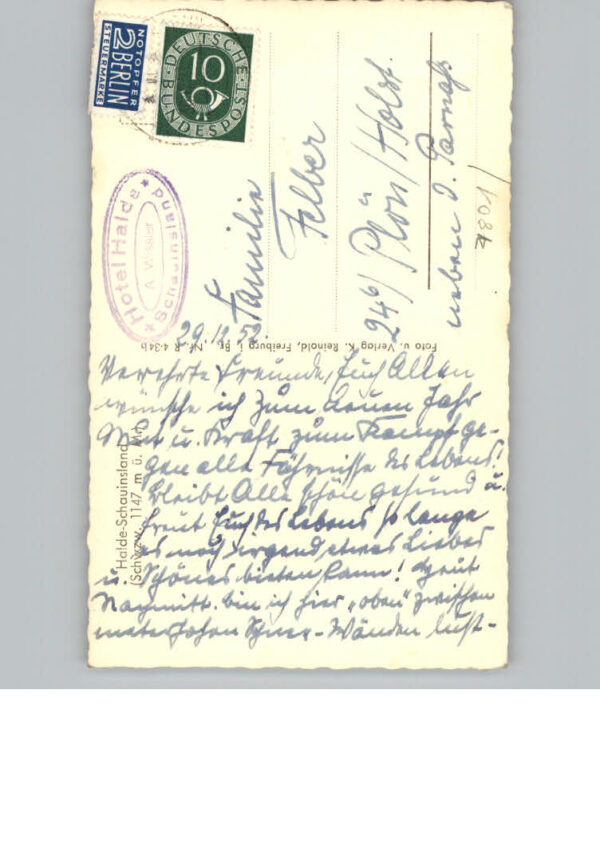 NOTOPFER
2 BERLIN
STEUERMARKE
DEUTSCHE
BUNDESPOST
10
Hotel Halde
A. Wissler
Schauinsland
Familie
Felber
24b/ Plön/Holst.
neben d. Parnaß
7801
29.12.52.
Foto u. Verlag K. Reinold, Freiburg i. Br., Nr. R 4-34b
Halde-Schauinsland
(Schwzw. 1147 m ü. M.)
Verehrte Freunde, Euch Allen
wünsche ich zum neuen Jahr
Mut u. Kraft zum Kampf ge-
gen alle Fährnisse des Lebens!
Bleibt Alle schön gesund u.
freut Euch des Lebens so lange
es noch irgend etwas Liebes
u. Schönes bieten kann! Heut
Nachmitt. bin ich hier „oben" zwischen
meterhohen Schnee-Wänden lust-